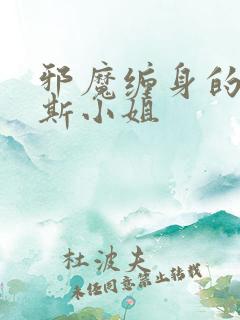 邪魔缠身的
斯小姐
杜波夫
未经同意禁止转载